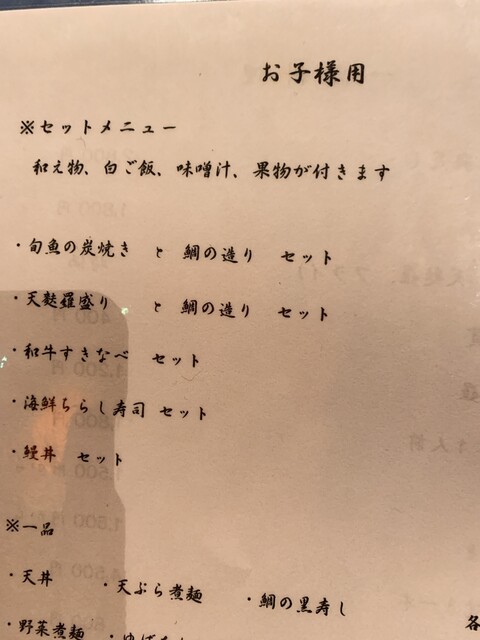 お子様用
※セットメニュー
和え物、白ご飯、味噌汁、果物が付きます
・旬魚の炭焼き と 鯛の造り セット
・天麩羅盛り と 鯛の造り セット
・和牛すきなべ セット
・海鮮ちらし寿司 セット
・鰻丼 セット
※一品
・天丼 ・天ぷら煮麺 ・鯛の黒寿し
各
・野菜煮麺